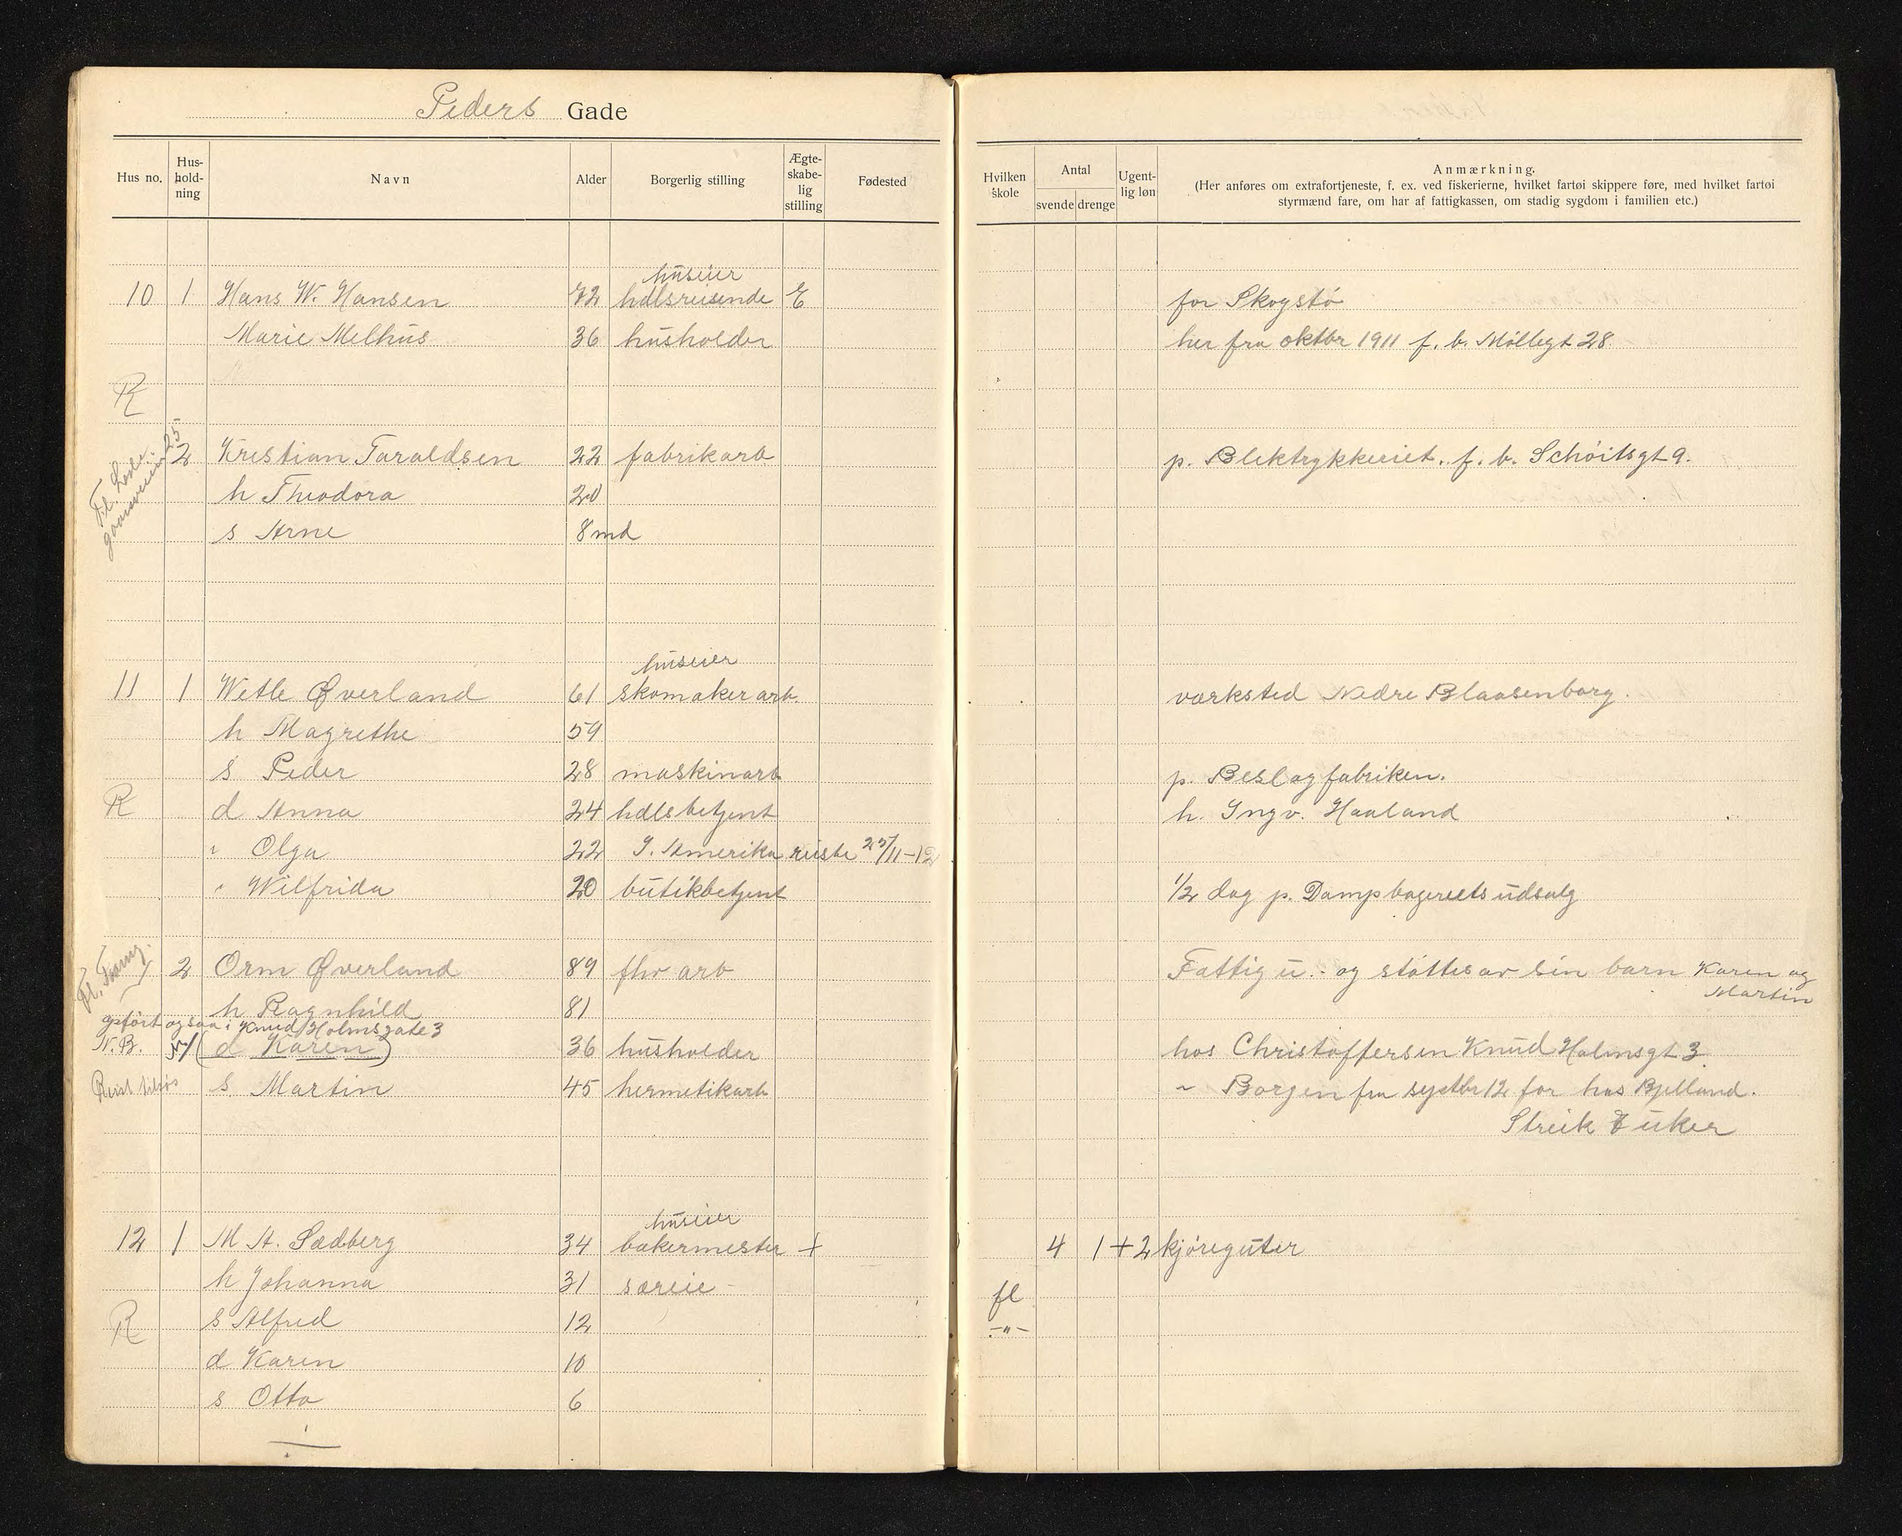 Peders Gade
Hus no. Hus-hold-ning Navn Alder Borgerlig stilling Ægte-skabe-lig stilling Fødested
Hvilken skole Antal svende drenge Ugent-lig løn Anmærkning.
(Her anføres om extrafortjeneste, f. ex. ved fiskerierne, hvilket fartøi skippere føre, med hvilket fartøi
styrmænd fare, om har af fattigkassen, om stadig sygdom i familien etc.)
huseier
10 1 Hans W. Hansen 72 hdlsreisende E for Skogstø
Marie Melhus 36 husholder her fra oktbr 1911 f. b. Møllegt 28
R
2 Kristian Taraldsen 22 fabrikarb p. Blektrykkeriet. f. b. Schøitsgt 9.
h Theodora 20
s Arne 8 md
Fl.
25
huseier
11 1 Wetle Øverland 61 skomaker arb. værksted Nedre Blaasenborg.
h Magrethe 59
s Peder 28 maskinarb p. Beslagfabriken.
R d Anna 24 hdlsbetjent h. Ingv. Haaland
" Olga 22 I. Amerika reiste 25/11-12
" Wilfrida 20 butikbetjent 1/2 dag p. Dampbageriets udsalg
Fl.
2 Orm Øverland 89 fhv arb Fattig u. - og støttes av sin barn Karen og
Martin
h Ragnhild 81
opført ogsaa i Knud Holmsgate 3
N.B. (d Karen) 36 husholder hos Christoffersen Knud Holmsgt 3
Reist tilsjøs s. Martin 45 hermetikarb " Borgen fra septbr 12 før hos Bjelland.
Streik uker
huseier
12 1 M A. Sædberg 34 bakermester + 4 1 + 2 kjøreguter
h Johanna 31 særeie -
R s Alfred 12 fl
d Karen 10 -"-
s Otto 6